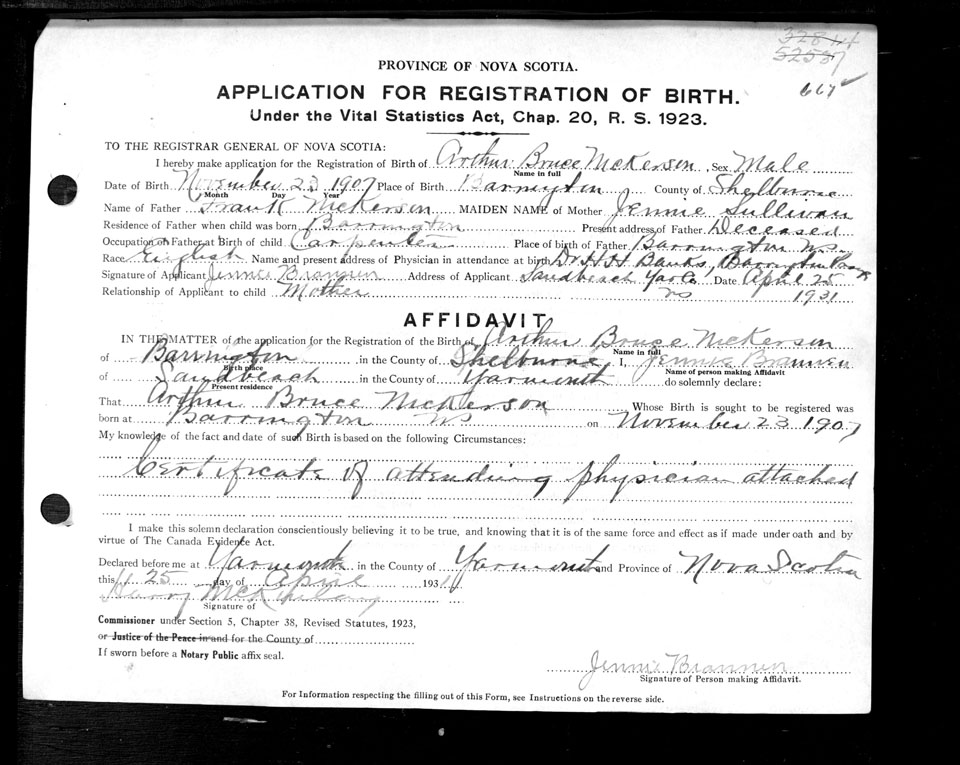 32814
52537
667
PROVINCE OF NOVA SCOTIA.
APPLICATION FOR REGISTRATION OF BIRTH.
Under the Vital Statistics Act, Chap. 20, R. S. 1923.
TO THE REGISTRAR GENERAL OF NOVA SCOTIA:
I hereby make application for the Registration of Birth of Arthur Bruce Nickerson Sex Male
Name in full
Date of Birth November 23 1907 Place of Birth Barrington County of Shelburne
Month Day Year
Name of Father Frank Nickerson MAIDEN NAME of Mother Jennie Sullivan
Residence of Father when child was born Barrington Present address of Father Deceased
Occupation of Father at Birth of child Carpenter Place of birth of Father Barrington NS.
Race English Name and present address of Physician in attendance at birth Dr H H Banks, Barrington Passage
Signature of Applicant Jennie Brannen Address of Applicant Sandbeach Yar Co Date April 25
Relationship of Applicant to child Mother NS 1931
AFFIDAVIT
IN THE MATTER of the application for the Registration of the Birth of Arthur Bruce Nickerson
Name in full
of Barrington in the County of Shelburne I, Jennie Brannen
Birth place Name of person making Affidavit
of Sandbeach in the County of Yarmouth do solemnly declare:
Present residence
That Arthur Bruce Nickerson Whose Birth is sought to be registered was
born at Barrington NS on November 23 1907
My knowledge of the fact and date of such Birth is based on the following Circumstances:
Certificate of attending physician attached
I make this solemn declaration conscientiously believing it to be true, and knowing that it is of the same force and effect as if made under oath and by
virtue of The Canada Evidence Act.
Declared before me at Yarmouth in the County of Yarmouth and Province of Nova Scotia
this 25 day of April 1931
Harry
Signature of
Commissioner under Section 5, Chapter 38, Revised Statutes, 1923,
or Justice of the Peace in and for the County of
If sworn before a Notary Public affix seal.
Jennie Brannen
Signature of Person making Affidavit.
For Information respecting the filling out of this Form, see Instructions on the reverse side.